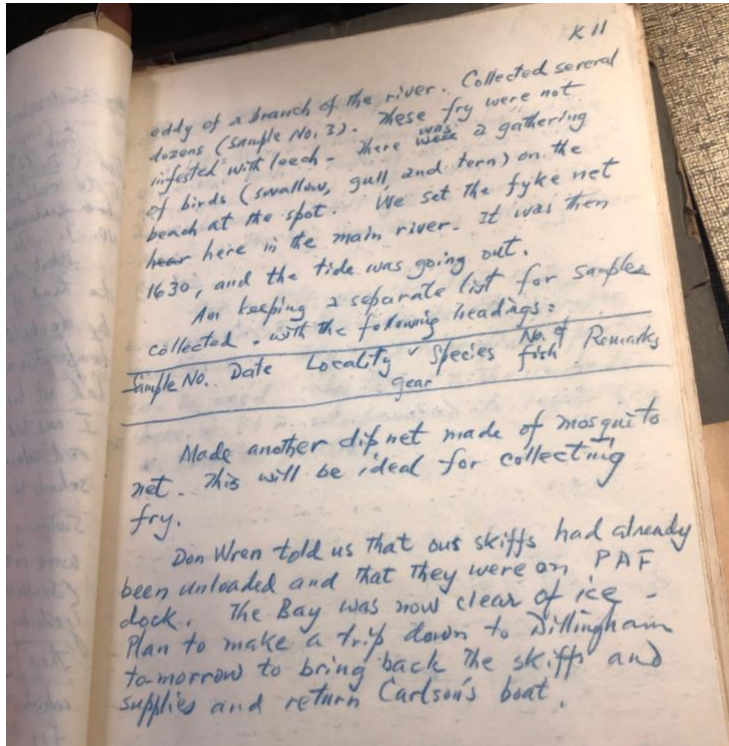 K 11
eddy of a branch of the river. Collected several
dozens (sample No. 3). These fry were not
infested with leech - There was were a gathering
of birds (swallow, gull and tern) on the
beach at the spot. We set the fyke net
hear here in the main river. It was then
1630, and the tide was going out.
Am keeping a separate list for samples
collected - with the following headings:
Sample No. Date Locality Species No. of fish Remarks
gear
Made another dip net made of mosquito
net. This will be ideal for collecting
fry.
Don Wren told us that our skiffs had already
been unloaded and that they were on PAF
dock. The Bay was now clear of ice -
Plan to make a trip down to Dillingham
to-morrow to bring back the skiffs and
supplies and return Carlson's boat.